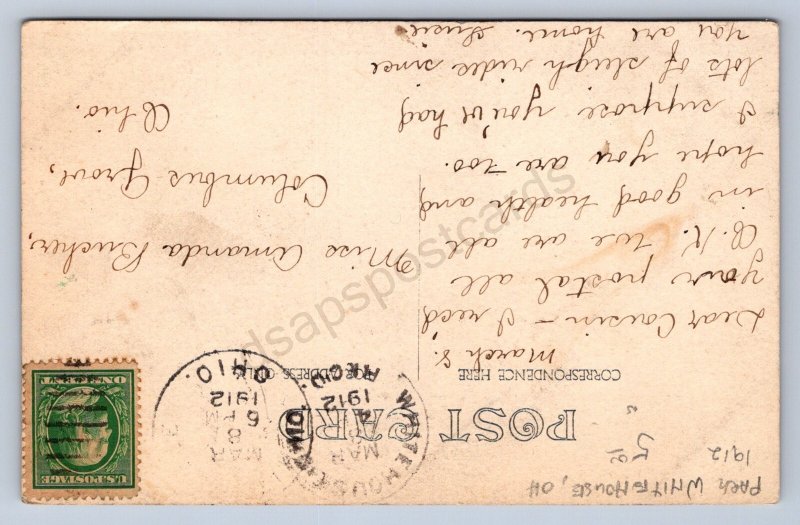 Park WHITEHOUSE, OH
1912
5.00
POST CARD
CORRESPONDENCE HERE
FOR ADDRESS ONLY
WHITEHOUSE
MAR
1912
OHIO.
MAR
8
6 PM
1912
OHIO.
U.S. POSTAGE
ONE CENT
March 8.
Dear Cousin - I rec'd
your postal all
O.K. We are all
in good health and
hope you are too.
I suppose you've had
lots of sleigh rides since
you are home. Lucie
Miss Amanda Bucher,
Columbus Grove,
Ohio.